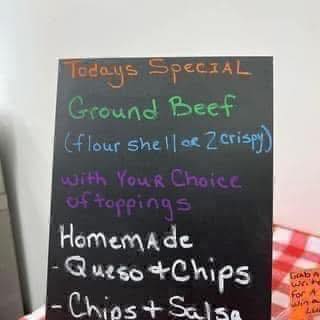 Todays SPECIAL
Ground Beef
(flour shell or 2 crispy)
with Your Choice
of toppings
Homemade
- Queso + Chips
- Chips + Salsa
Grab A
Write
For A
Win a